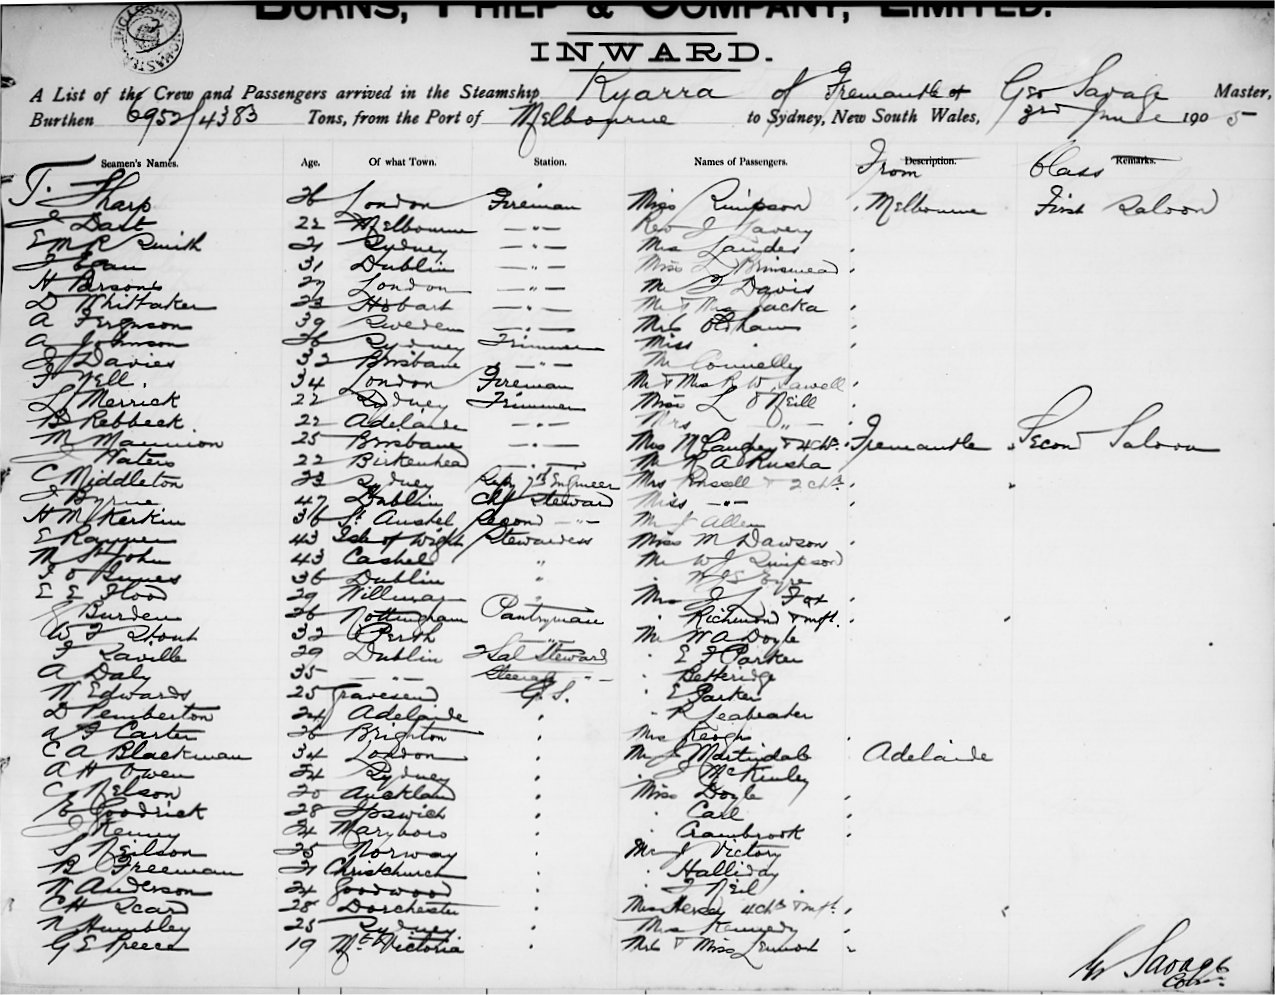 BURNS, PHILP & COMPANY, LIMITED.
INWARD.
A List of the Crew and Passengers arrived in the Steamship Kyarra of Fremantle Geo Savage Master,
Burthen 6952/4383 Tons, from the Port of Melbourne to Sydney, New South Wales, 3rd June 1905
Seamen's Names. Age. Of what Town. Station. Names of Passengers. From Description. Class Remarks.
T. Sharp 26 London Fireman Miss Simpson Melbourne First Saloon
J Dart 22 Melbourne —"— Rev J Lavery
E M R Smith 21 Sydney —"— Mrs Landes
J Egan 31 Dublin —"— Miss L Brinsmead
H Parsons 27 London —"— Mr J Davis
D Whittaker 23 Hobart —"— Mr & Mrs Jacka
A Ferguson 39 Sweden —"— Mrs Oldham
A Johnson 26 Sydney Trimmer Miss "
J Davies 32 Brisbane —"— Mr Connelly
F Nell. 34 London Fireman Mr & Mrs R W Sawell
L Merrick 22 Sydney Trimmer Miss L O'Neill
B Rebbeck 22 Adelaide —"— Mrs —"—
M Mannion 25 Brisbane —"— Mrs McCaughey & 4 ch. Fremantle Second Saloon
J Waters 22 Birkenhead —"— Mr K A Kusha
C Middleton 23 Sydney Engineer Mrs Russell & 2 ch.
J Byrne 47 Dublin Chf Steward Miss —"—
H M Kerkin 36 St Austel Second —"— Mr J Allen
E Rayner 43 Isle of Wight Stewardess Miss M Dawson
M St John 43 Cashel " Mr W J Simpson
36 Dublin " Eyre
E E Flood 29 " Mrs J L Fox
J Burden 26 Nottingham Pantryman " Richmond & inft.
W J Stout 32 Perth —"— Mr W A Doyle
F Saville 29 Dublin 2 Sal Steward " E F Parker
A Daly 35 —"— Steerage —"— " Betteridge
W Edwards 25 Gravesend G.S. " E Parker
D Pemberton 24 Adelaide " " R Seabeater
W J Carter 26 Brighton " Mrs Keogh
C A Blackman 34 London " Mr J Martindale Adelaide
A H Owen 24 Sydney " " J McKinley
C Nelson 20 Auckland " Miss Doyle
E Goodrick 28 Ipswich " " Carl
J Kenny 24 Maryboro " " Crambrook
S Neilson 25 Norway " Mr J Victory
B Freeman 21 Christchurch " " Halliday
W Anderson 24 Goodwood " " J Neil
C H Scard 28 Dorchester " Mrs Hersey 4 ch. & inft.
N Humbley 25 Sydney " Mrs Kennedy
G E Speece 19 Mt Victoria " Mrs & Miss Lennox
G Savage